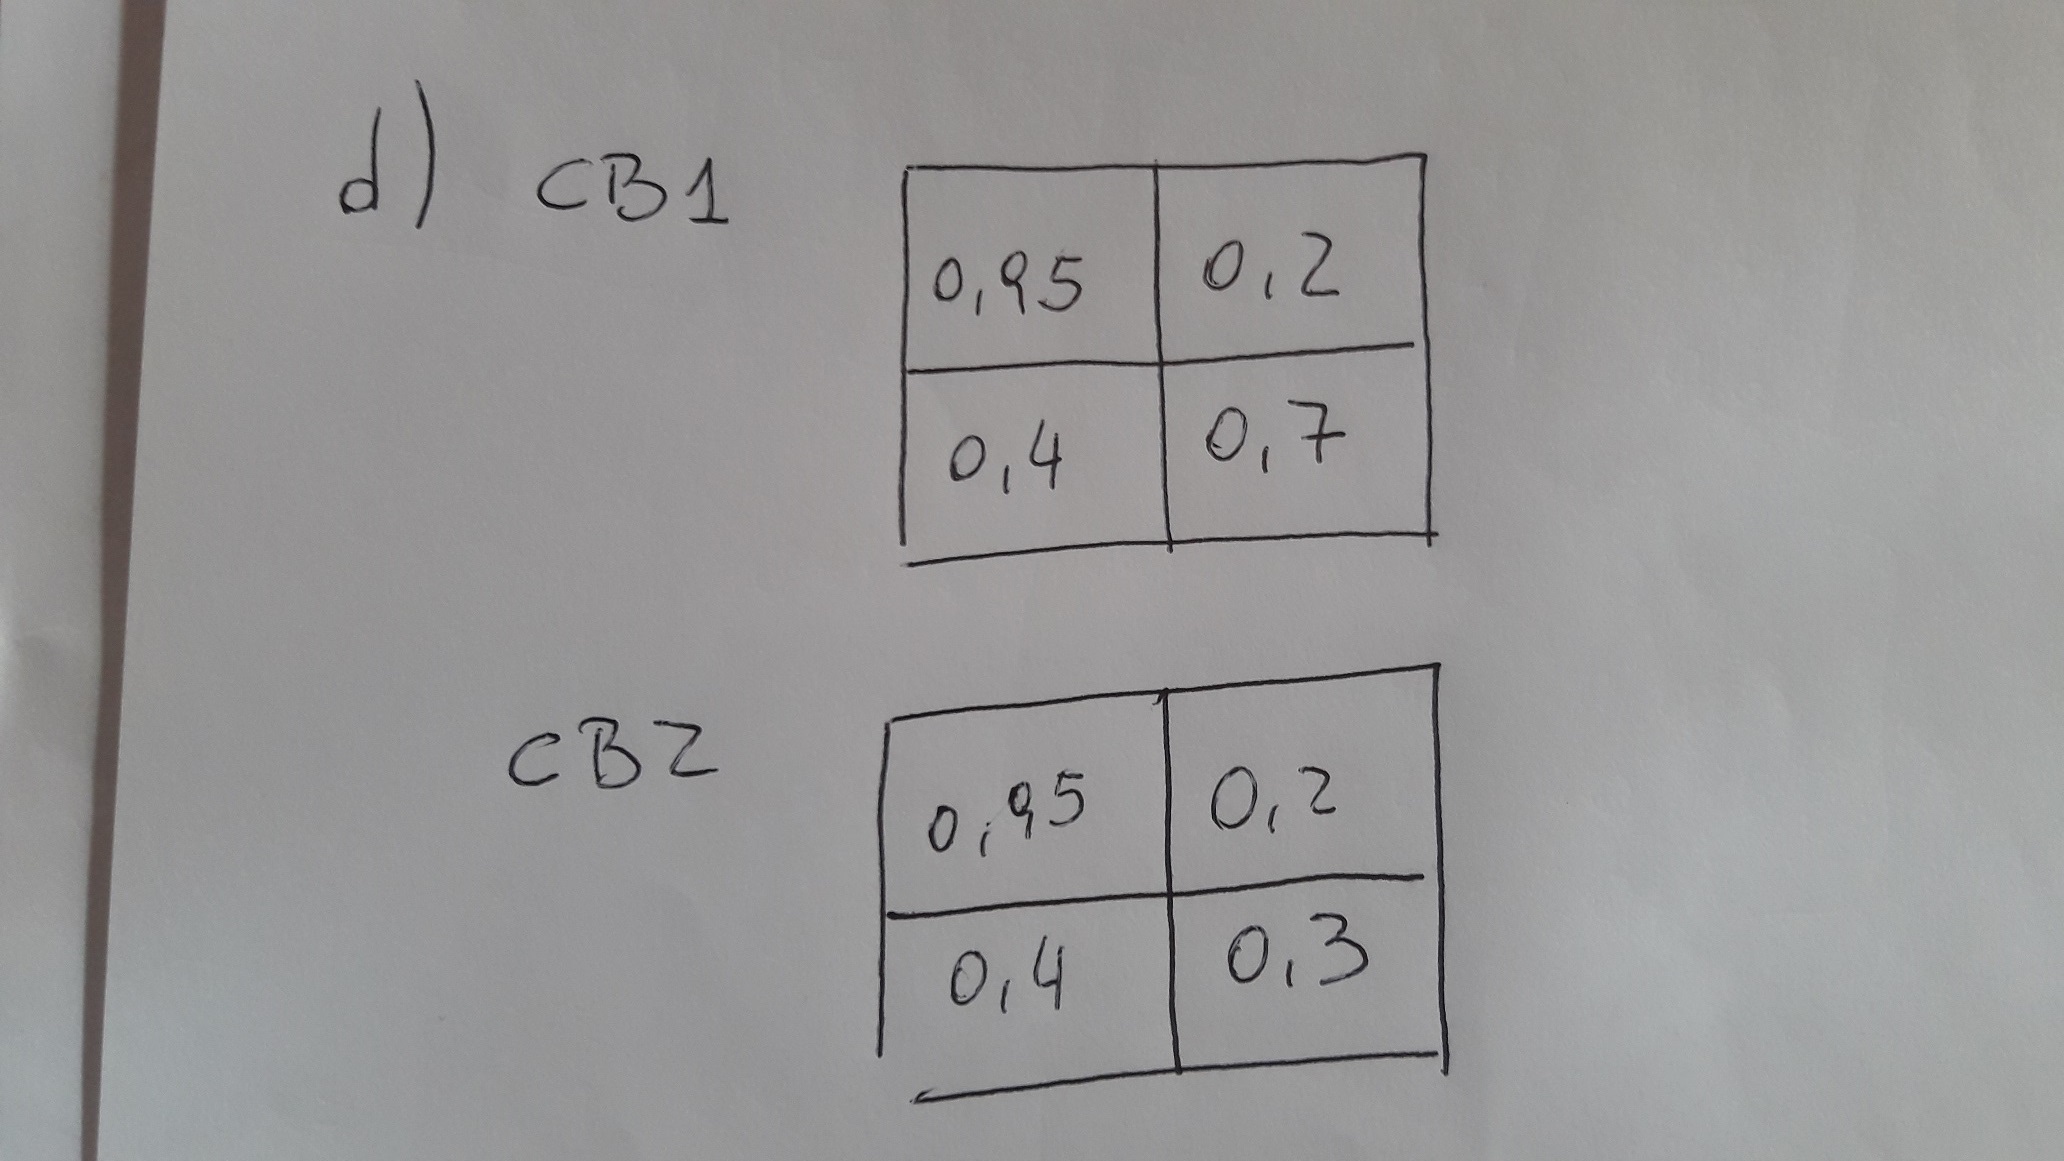 d) CB1
0,95 0,2
0,4 0,7
CB2
0,95 0,2
0,4 0,3